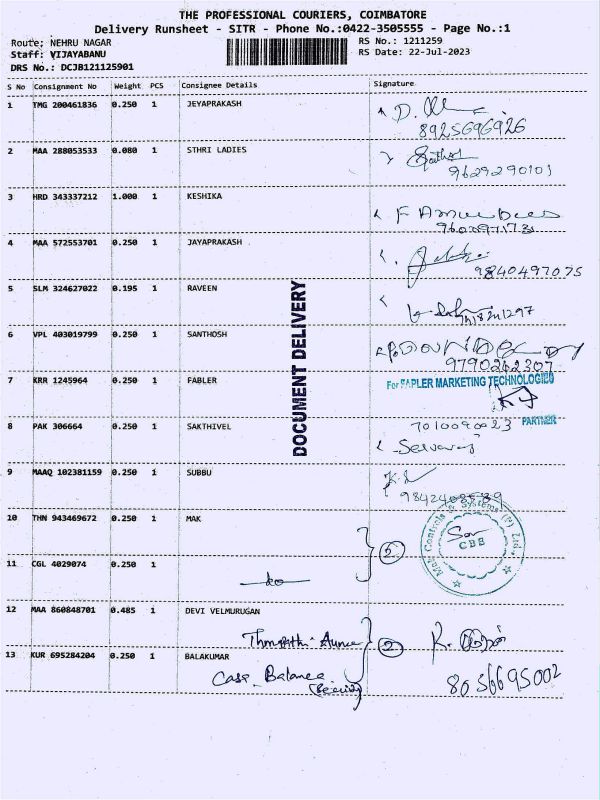 THE PROFESSIONAL COURIERS, COIMBATORE
Delivery Runsheet - SITR - Phone No.:0422-3505555 - Page No.:1
Route; NEHRU NAGAR RS No.: 1211259
Staff: VIJAYABANU RS Date: 22-Jul-2023
DRS No.: DCJB121125901
S No Consignment No Weight PCS Consignee Details Signature
1 TMG 200461836 0.250 1 JEYAPRAKASH
8925696926
2 MAA 288053533 0.080 1 STHRI LADIES
9629290101
3 HRD 343337212 1.000 1 KESHIKA
4 MAA 572553701 0.250 1 JAYAPRAKASH
9840497075
5 SLM 324627022 0.195 1 RAVEEN
6 VPL 403019799 0.250 1 SANTHOSH
9790262307
DOCUMENT DELIVERY
7 KRR 1245964 0.250 1 FABLER For FAPLER MARKETING TECHNOLOGIES
PARTNER
8 PAK 306664 0.250 1 SAKTHIVEL 7010090023
Selvaraj
9 MAAQ 102381159 0.250 1 SUBBU
10 THN 943469672 0.250 1 MAK
Mak Controls & Systems (P) Ltd.
CBE
11 CGL 4029074 0.250 1
12 MAA 860848701 0.485 1 DEVI VELMURUGAN
2
13 KUR 695284204 0.250 1 BALAKUMAR
Case Balance
8056695002